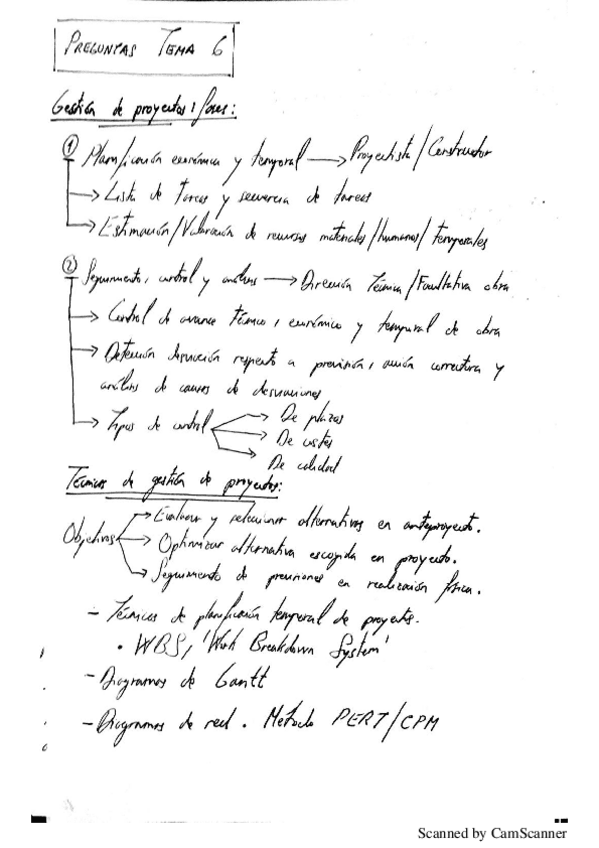 PREGUNTAS TEMA 6
Gestión de proyectos: fases:
① Planificación económica y temporal → Proyectista/Constructor
→ Lista de tareas y secuencia de tareas
→ Estimación/Valoración de recursos materiales/humanos/temporales
② Seguimiento, control y análisis → Dirección Técnica/Facultativa obra
→ Control de avance técnico, económico y temporal de obra
→ Detección desviación respecto a previsión, acción correctora y
análisis de causas de desviaciones
→ Tipos de control → De plazos
→ De costes
→ De calidad
Técnicas de gestión de proyectos:
Objetivos → Evaluar y seleccionar alternativas en anteproyecto.
→ Optimizar alternativa escogida en proyecto.
→ Seguimiento de previsiones en realización física.
- Técnicas de planificación temporal de proyectos.
• WBS, 'Work Breakdown System'
- Diagramas de Gantt
- Diagramas de red. Método PERT/CPM
Scanned by CamScanner